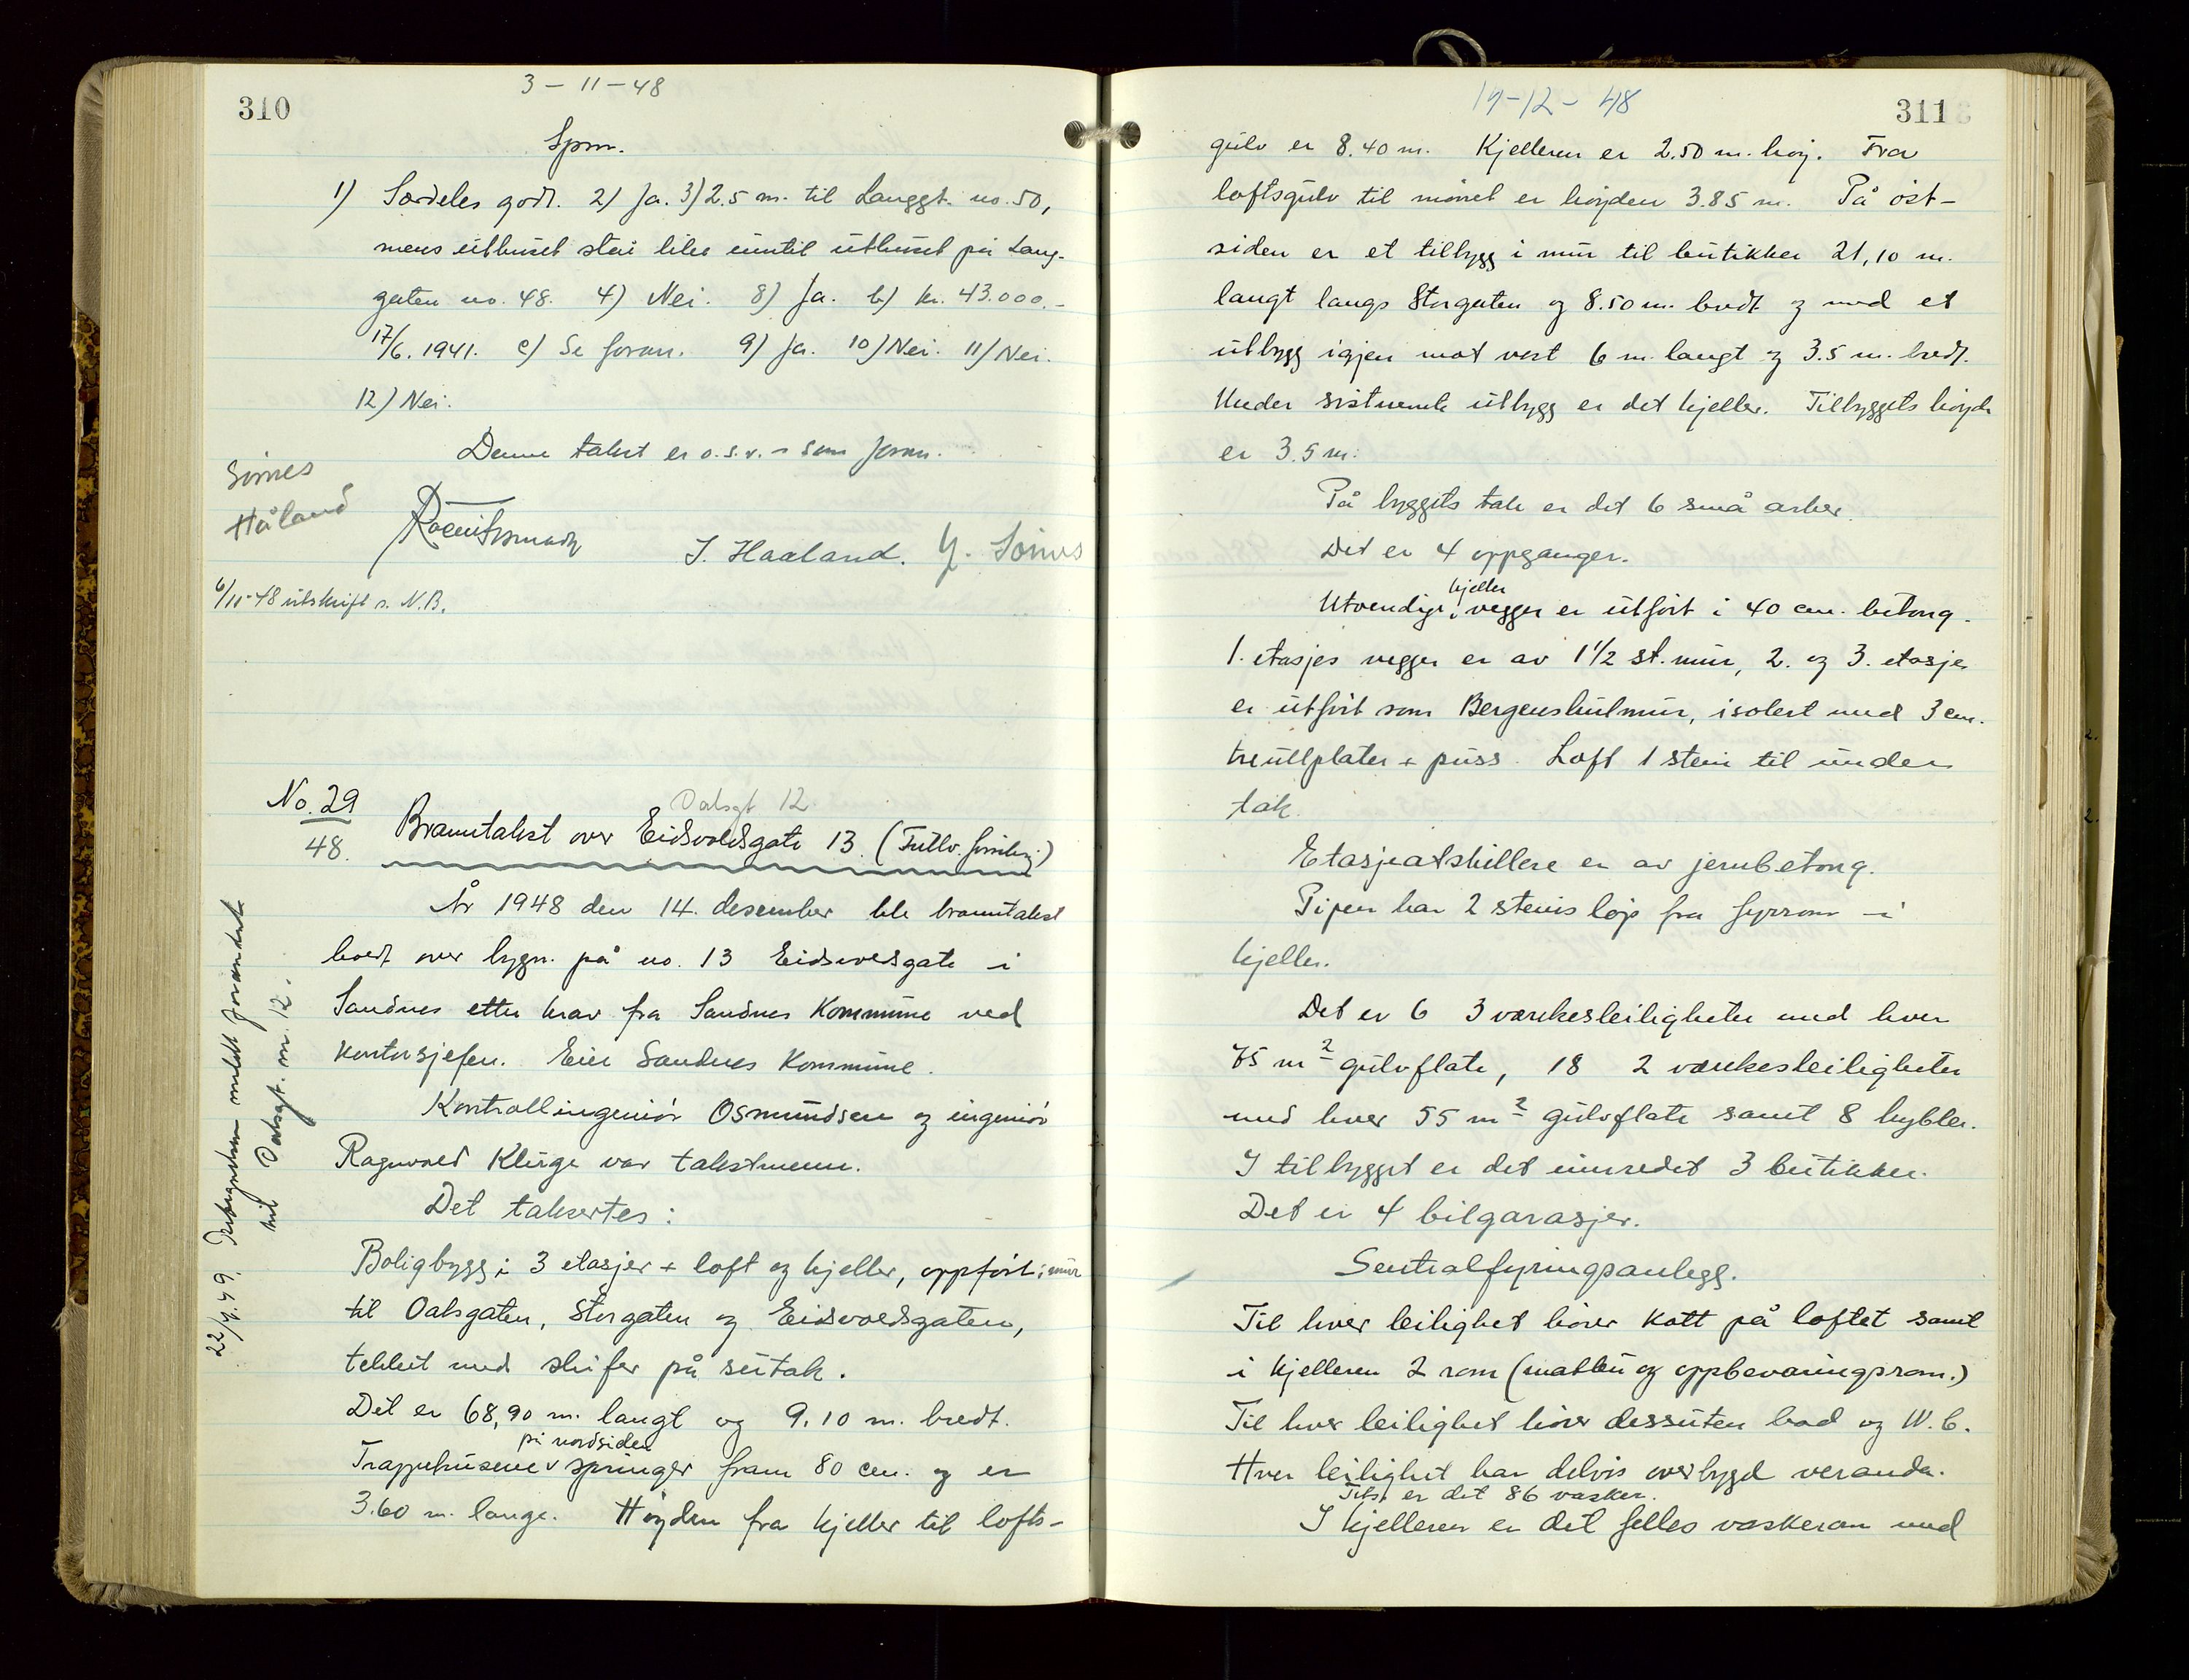 310
3-11-48
Spm.
1) Særdeles godt. 2) Ja. 3) 2.5 m. til Langgt. no. 50,
mens uthuset står like inntil uthuset på Lang-
gaten no. 48. 4) Nei. 8) Ja. b) kr. 43.000.-
17/6. 1941. c) Se foran. 9) Ja. 10) Nei. 11) Nei.
12) Nei.
Denne takst er o.s.v. - som foran.
Sømes
Håland
J. Haaland.
6/11-48 utskrift s. N.B.
No. 29
48.
Dalsgt 12
Branntakst over Eidsvoldsgate 13.
År 1948 den 14. desember ble branntakst
holdt over bygn. på no. 13 Eidsvoldsgate i
Sandnes etter krav fra Sandnes Kommune ved
kontorsjefen. Eier Sandnes Kommune.
Kontrollingeniør Osmundsen og ingeniør
Ragnvald Kluge var takstmenn.
Det takseres:
Boligbygg i 3 etasjer + loft og kjeller, oppført i mur
til Dalsgaten, Storgaten og Eidsvoldsgaten,
tekket med skifer på sutak.
Det er 68,90 m. langt og 9.10 m. bredt.
på nordsiden
Trappehusene v springer fram 80 cm. og er
3.60 m. lange. Høyden fra kjeller til lofts-
22/4.49. meldt forandret
til Dalsgt. nr. 12.
311
14-12-48
gulv er 8.40 m. Kjelleren er 2.50 m. høy. Fra
loftsgulv til mønet er høyden 3.85 m. På øst-
siden er et tilbygg i mur til butikker 21,10 m.
langt langs Storgaten og 8.50 m. bredt og med et
utbygg igjen mot vest 6 m. langt og 3.5 m. bredt.
Under sistnevnte utbygg er det kjeller. Tilbyggets høyde
er 3.5 m.
På byggets tak er det 6 små arker.
Det er 4 oppganger.
kjeller
Utvendige vegger er utført i 40 cm. betong.
1. etasjes vegger er av 1½ st. mur, 2. og 3. etasje
er utført som Bergenshulmur, isolert med 3 cm.
treullplater + puss. Loft 1 stein til under
tak.
Etasjeatskillere er av jernbetong.
Pipen har 2 steins løp fra fyrrom i
kjeller.
Det er 6 3 værelsesleiligheter med hver
75 m² gulvflate, 18 2 værelsesleiligheter
med hver 55 m² gulvflate samt 8 hybler.
I tilbygget er det innredet 3 butikker.
Det er 4 bilgarasjer.
Sentralfyringsanlegg.
Til hver leilighet hører kott på loftet samt
i kjelleren 2 rom (matbu og oppbevaringsrom.)
Til hver leilighet hører dessuten bad og W.C.
Hver leilighet har delvis overbygd veranda.
Tils. er det 86 vasker.
I kjelleren er det felles vaskerom med